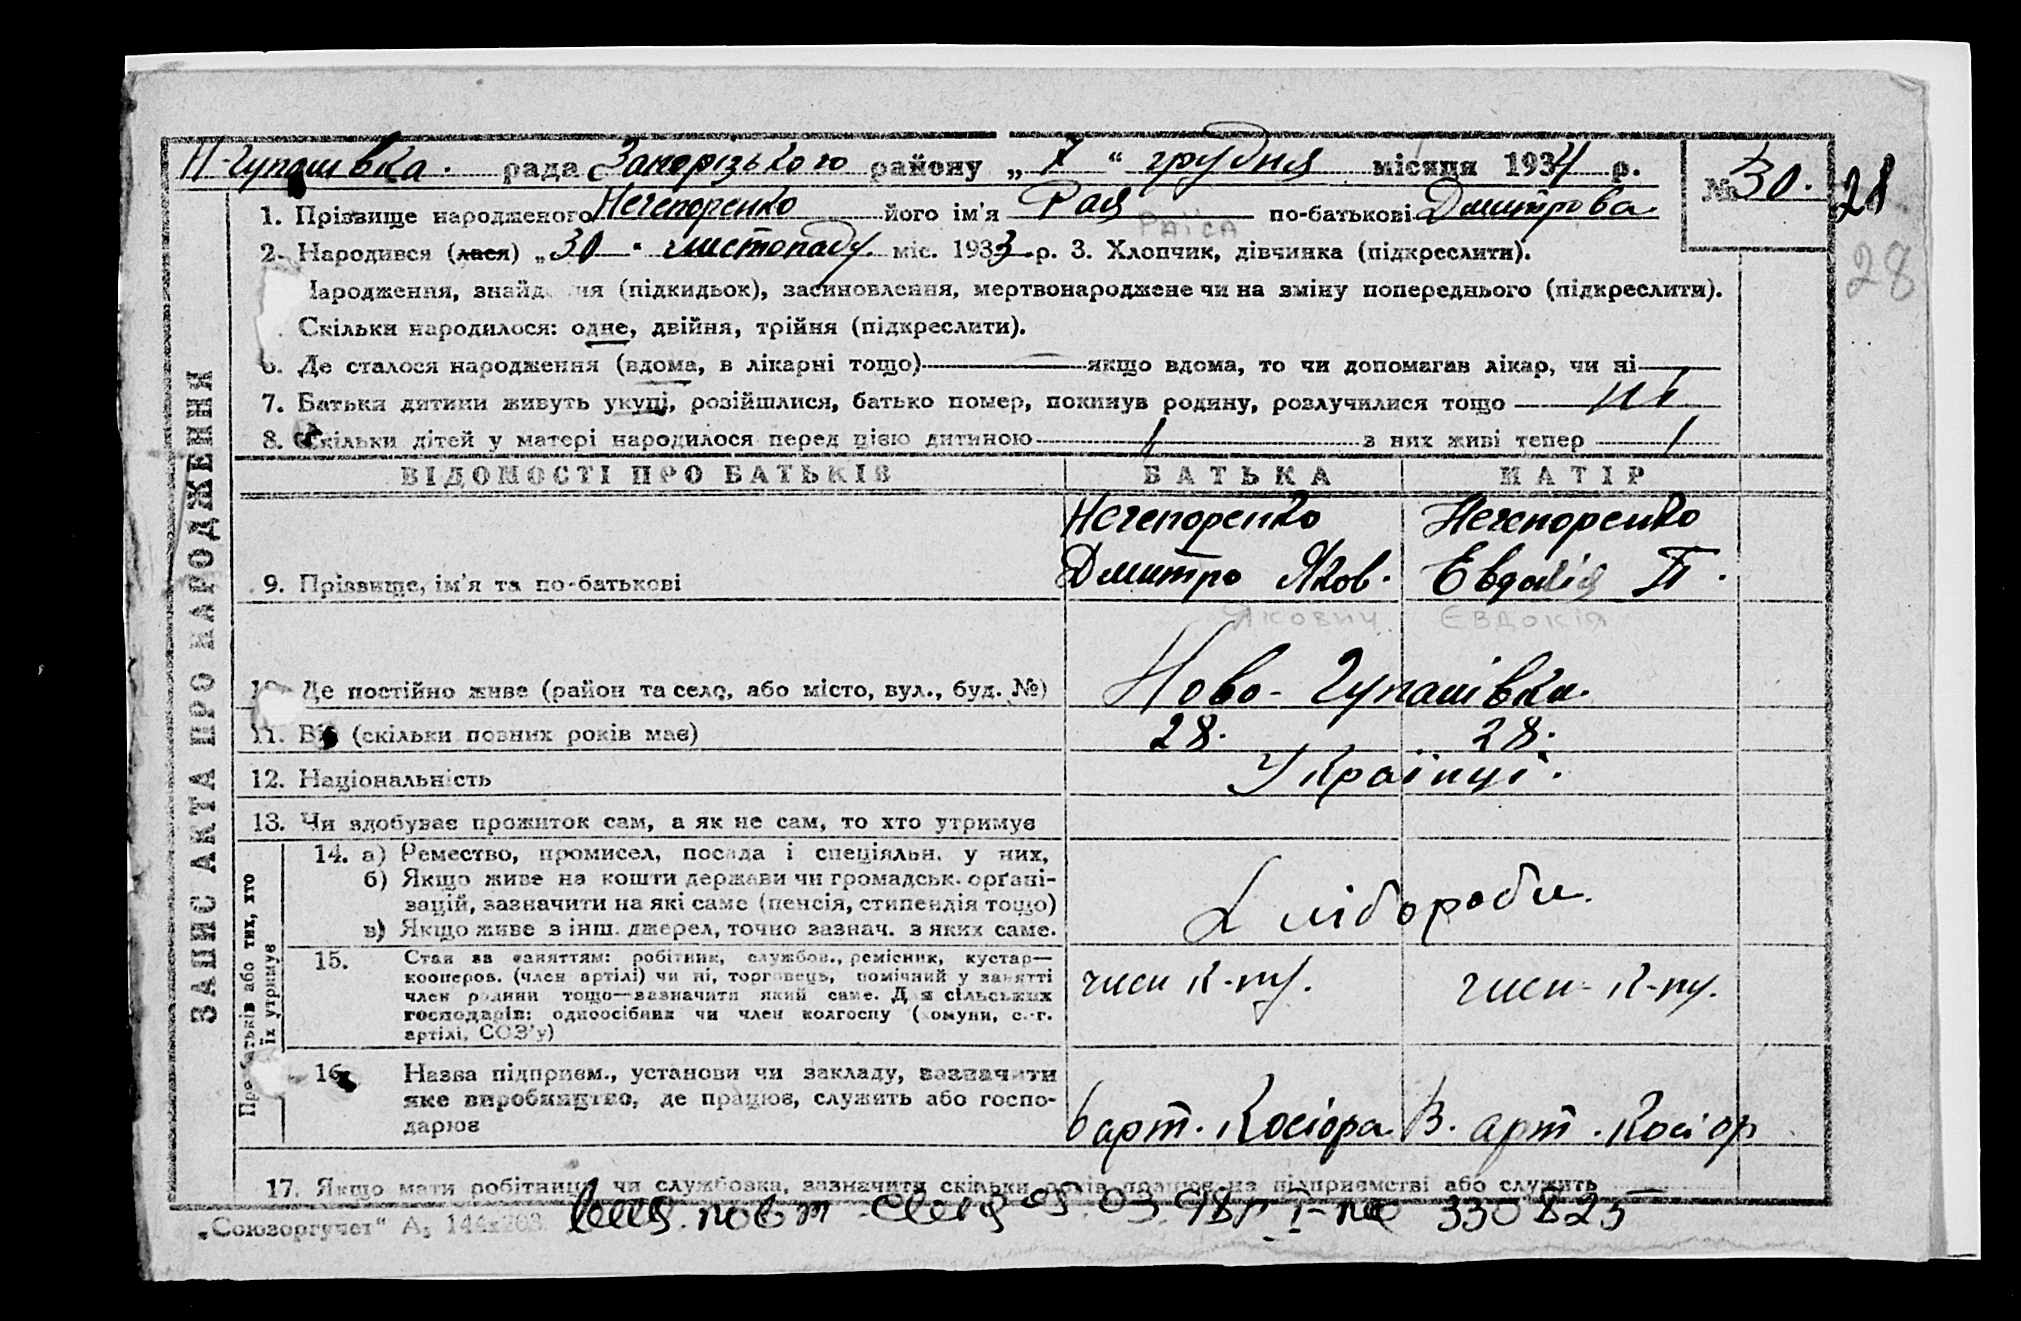 Н-Гупашівка. рада Запорізького району „ 7 “ грудня місяця 1934 р.
№ 30. 28
1. Прізвище народженого Нечепоренко його ім'я Рая по-батькові Дмитрова
РАЇСА
2. Народився (лася) „ 30 “ листопаду міс. 1933 р. 3. Хлопчик, дівчинка (підкреслити).
28
Народження, знайдення (підкидьок), засиновлення, мертвонароджене чи на зміну попереднього (підкреслити).
Скільки народилося: одне, двійня, трійня (підкреслити).
6. Де сталося народження (вдома, в лікарні тощо) якщо вдома, то чи допомагав лікар, чи ні
7. Батьки дитини живуть укупі, розійшлися, батько помер, покинув родину, розлучилися тощо ні
8. Скільки дітей у матері народилося перед цією дитиною 1 з них живі тепер 1
ЗАПИС АКТА ПРО НАРОДЖЕННЯ
ВІДОМОСТІ ПРО БАТЬКІВ БАТЬКА МАТІР
Нечепоренко Нечепоренко
9. Прізвище, ім'я та по-батькові Дмитро Яков. Евдокія П.
Якович ЄВДОКІЯ
10. Де постійно живе (район та село, або місто, вул., буд. №) Ново-Гупашівка.
11. Вік (скільки повних років має) 28. 28.
12. Національність Українці.
13. Чи здобуває прожиток сам, а як не сам, то хто утримує
Про батьків або тих, хто їх утримує
14. а) Ремество, промисел, посада і спеціяльн. у них,
б) Якщо живе на кошти держави чи громадськ. органі-
зацій, зазначити на які саме (пенсія, стипендія тощо)
в) Якщо живе з інш. джерел, точно зазнач. з яких саме.
Хлібороби.
15. Стан за заняттям: робітник, службов., ремісник, кустар—
кооперов. (член артілі) чи ні, торговець, помічний у занятті
член родини тощо—зазначити який саме. Для сільських
господарів: одноосібник чи член колгоспу (комуни, с.-г.
артілі, СОЗ'у)
член к-пу. член к-пу.
16. Назва підприєм., установи чи закладу, зазначити
яке виробництво, де працює, служить або госпо-
дарює
в арт. Косіора В. арт. Косіор
17. Якщо мати робітниця чи службовка, зазначити скільки років працює на підприємстві або служить
„Союзоргучет“ А₅ 144х203. повт 03.98 I-ЖС 330825